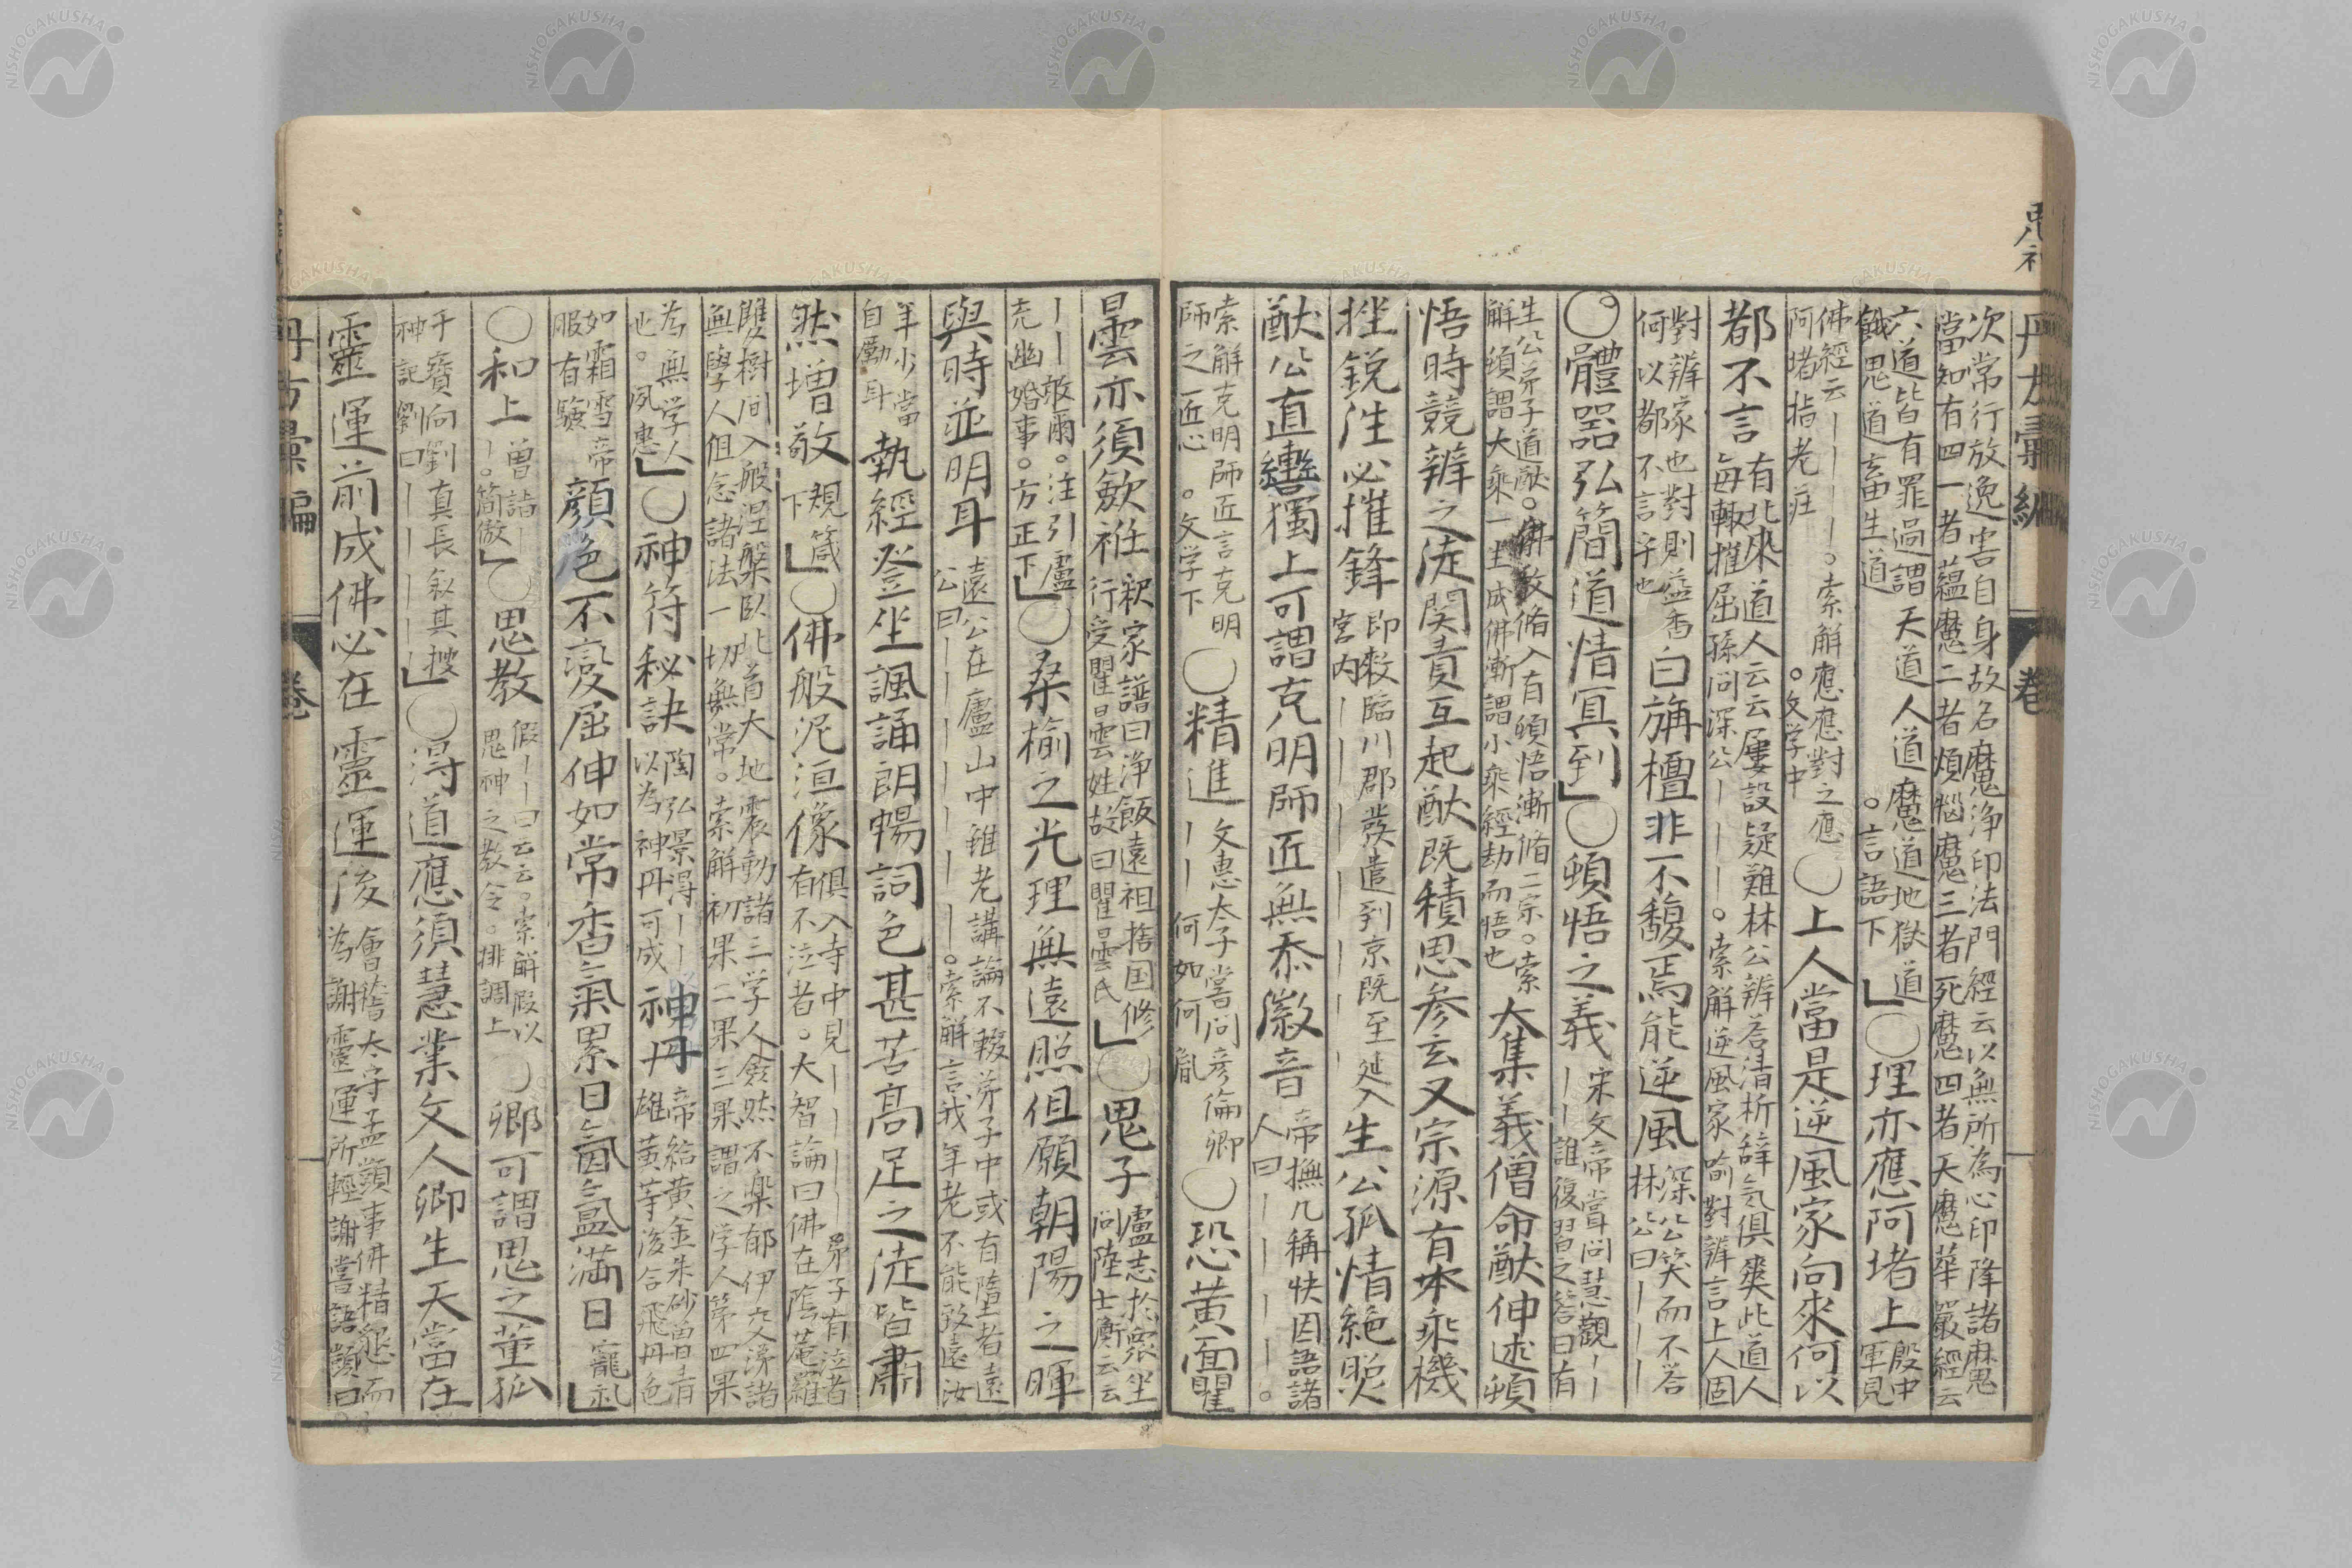 次常行放逸害自身故名魔淨印法門經云以無所為心印降諸魔
當知有四一者蘊魔二者煩惱魔三者死魔四者天魔華嚴經云
六道皆有罪過謂天道人道魔道地獄道
餓鬼道畜生道 。言語下」○理亦應阿堵上殷中軍見
佛經云ーーーー。索解應應對之應
阿堵指老莊 。文学中○上人當是逆風家向來何以
都不言有北來道人云云屢設疑難林公辨答清析辞気俱爽此道人
每輙摧屈孫问深公ーーーー。索解逆風家喻對辨言上人固
對辨家也對則益香
何以都不言乎也白旃檀非不馥焉能逆風深公笑而不答
林公曰ーーー
○體器弘簡道情冥到」○頓悟之義宋文帝嘗问慧觀ーー
ーー誰復習之答曰有
生公弟子道猷。佛教脩入有頓悟漸脩二宗。索
解頓謂大乘一生成佛漸謂小乘經劫而悟也大集義僧命猷伸述頓
悟時競辨之徒関責互起猷既積思参玄又宗源有本乘機
挫鋭洼必摧鋒即敕臨川郡發遣到京既至延入
宮內ーーーーーー生公孤情絶照
猷公直轡獨上可謂克明師匠無忝徽音帝撫几稱快因語諸
人曰ーーーーー。
索解克明師匠言克明
師之一匠心 。文学下○精進文惠太子嘗问彦倫卿
ーーー何如何胤○恐黄面瞿
曇亦須歛袵釈家譜曰淨飯遠祖捨国修
行受瞿曇姓故曰瞿曇氏」○鬼子盧志於衆坐
问陸士衡云云
ーー敢爾。注引盧
充幽婚事。方正下」○桑榆之光理無遠照但願朝陽之暉
與時並明耳遠公在廬山中雖老講論不輟弟子中或有墮者遠
公曰ーーーーーーー。索解言我年老不能致遠汝
年少當
自勵耳執經登坐諷誦朗暢詞色甚苦高足之徒皆肅
然増敬規箴
下」○佛般泥洹像俱入寺中見ーーーーー弟子有泣者
有不泣者。大智論曰佛在陰菴羅
雙樹间入般涅槃臥北首大地震動諸三学人僉然不樂郁伊交涕諸
無學人但念諸法一切無常。索解初果二果三果謂之学人第四果
為無学人
也。夙惠」○神符秘訣陶弘景得ーー
以為神丹可成神丹帝給黄金朱砂曽青
雄黄等後合飛丹色
如霜雪帝
服有驗顔色不變屈伸如常香氣累日氤氲滿日寵礼」
○和上曽詣ー
ー。簡傲」○思教假ーー曰云云。索解假以
鬼神之教令。排調上○卿可謂鬼之董狐
干寶向劉真長叙其搜
神記劉曰ーーーーー」○得道應須慧業文人卿生天當在
靈運前成佛必在靈運後會稽太守孟顗事佛精懇而
為謝靈運所輕謝嘗語顗曰